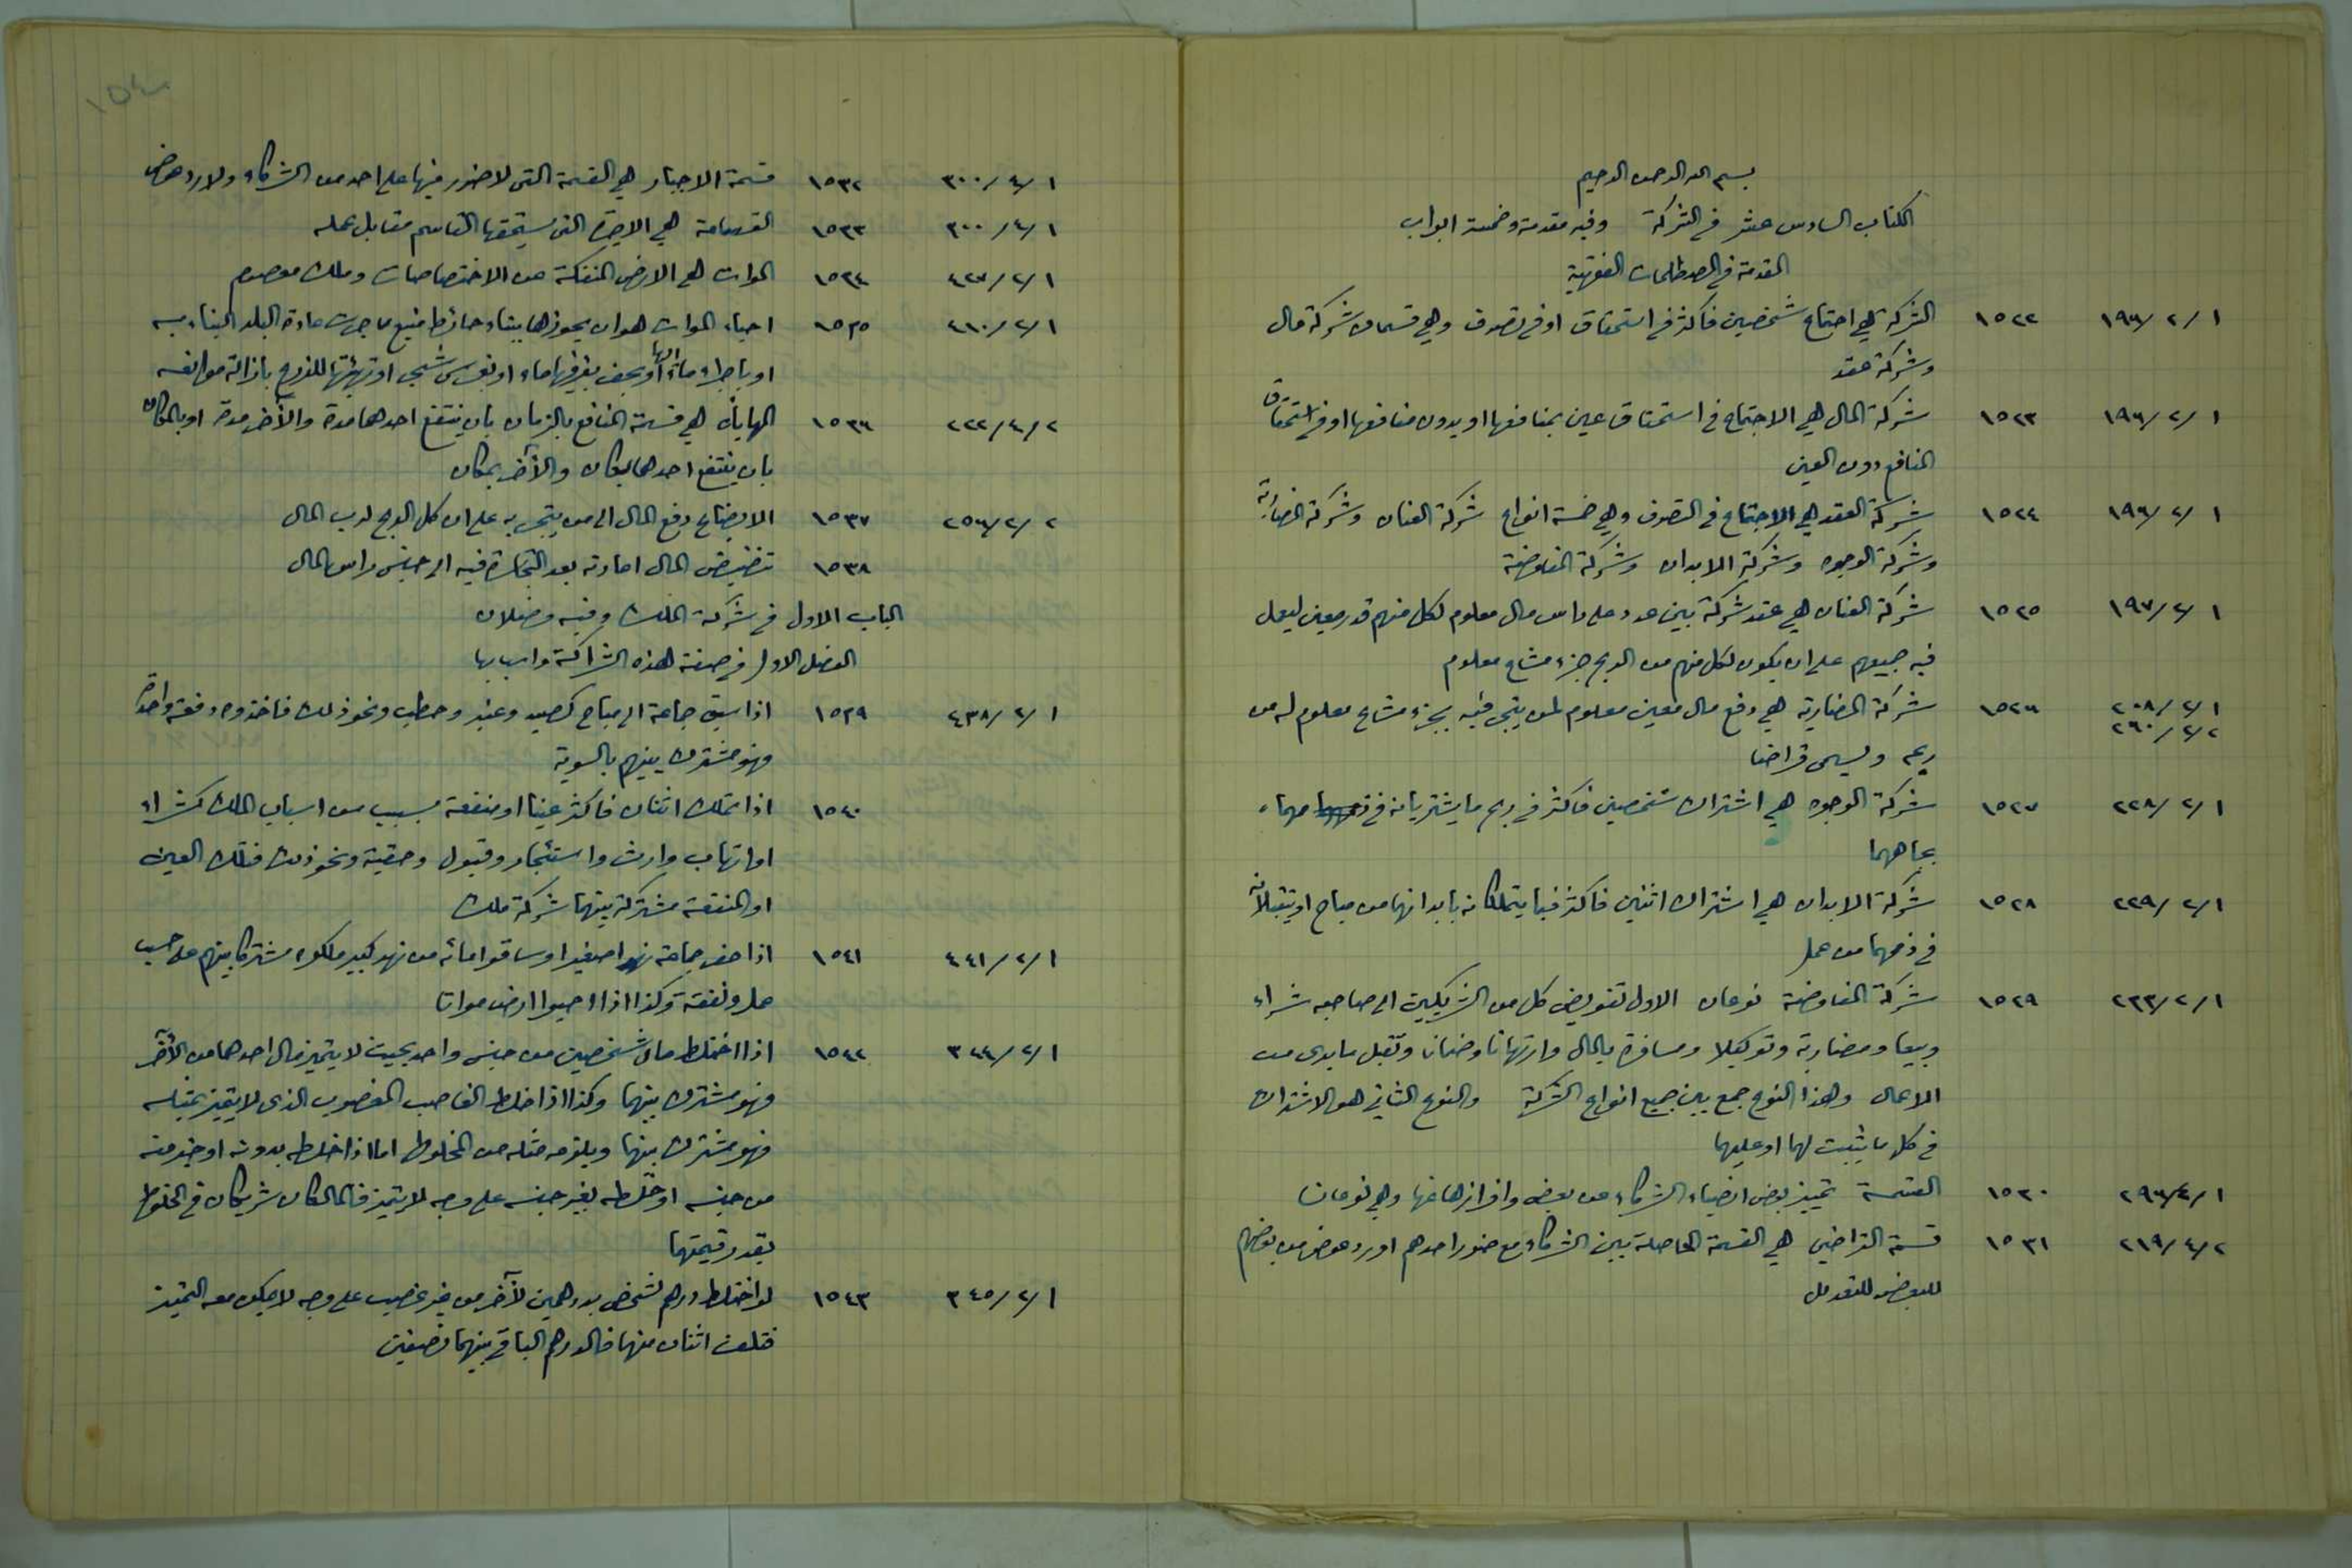 بسم الله الرحمن الرحيم
الكتاب السادس عشر في الشركة وفيه مقدمة وخمسة ابواب
المقدمة في المصطلحات الفقهية
١/٢/١٩٦ ١٥٢٢ الشركة هي اجتماع شخصين فاكثر في استحقاق او في تصرف وهي قسمان شركة مال
وشركة عقد
١/٢/١٩٦ ١٥٢٣ شركة المال هي الاجتماع في استحقاق عين بمنافعها او بدون منافعها او في استحقاق
المنافع دون العين
١/٢/١٩٦ ١٥٢٤ شركة العقد هي الاجتماع في التصرف وهي خمسة انواع شركة العنان وشركة المضاربة
وشركة الوجوه وشركة الابدان وشركة المفاوضة
١/٢/١٩٧ ١٥٢٥ شركة العنان هي عقد شركة بين عدد على راس مال معلوم لكل منهم قدر معين ليعمل
فيه جميعهم على ان يكون لكل منهم من الربح جزء مشاع معلوم
١/٢/٢٠٨ ١٥٢٦ شركة المضاربة هي دفع مال معين معلوم لمن يتجر فيه بجزء مشاع معلوم له من
٢/٢/٢٦٠
ربحه ويسمى قراضا
١/٢/٢٢٨ ١٥٢٧ شركة الوجوه هي اشتراك شخصين فاكثر في ربح ما يشتريانه في ذممهما
بجاههما
١/٢/٢٢٩ ١٥٢٨ شركة الابدان هي اشتراك اثنين فاكثر فيما يتملكانه بابدانهما من مباح او يتقبلانه
في ذممهما من عمل
١/٢/٢٣٣ ١٥٢٩ شركة المفاوضة نوعان الاول تفويض كل من الشريكين الى صاحبه شراء
وبيعا ومضاربة وتوكيلا ومسافرة بالمال وارتهانا وضمانا وتقبل ما يرى من
الاعمال وهذا النوع جمع بين جميع انواع الشركة والنوع الثاني هو الاشتراك
في كل ما يثبت لهما او عليهما
١/٤/٢٩٦ ١٥٣٠ القسمة تمييز بعض انصباء الشركاء من بعض وافرازها عنها وهي نوعان
٢/٤/٢١٩ ١٥٣١ قسمة التراضي هي القسمة الحاصلة بين الشركاء مع ضرر احدهم او رد عوض من بعضهم
للبعض للتعديل
١/٤/٣٠٠ ١٥٣٢ قسمة الاجبار هي القسمة التي لا ضرر فيها على احد من الشركاء ولا رد عوض
١/٤/٣٠٠ ١٥٣٣ القسامة هي الاجرة التي يستحقها القاسم مقابل عمله
١/٢/٤٢٧ ١٥٣٤ الموات هي الارض المنفكة عن الاختصاصات وملك معصوم
١/٢/٤٦٠ ١٥٣٥ احياء الموات هو ان يحوزها ببناء حائط منيع بما جرت عادة البلد البناء به
او باجراء ماء اليها او بحفر بئر فيها ماء او بغرس شجر او تهيئتها للزرع بازالة موانعه
٢/٤/٢٢٢ ١٥٣٦ المهاياة هي قسمة المنافع بالزمان بان ينتفع احدهما مدة والآخر مدة او بالمكان
بان ينتفع احدهما بمكان والآخر بمكان
٢/٢/٢٥٦ ١٥٣٧ الابضاع دفع المال الى من يتجر به على ان كل الربح لرب المال
١٥٣٨ تنضيض المال اعادته بعد التجارة فيه الى جنس راس المال
الباب الاول في شركة الملك وفيه فصلان
الفصل الاول في صفة هذه الشراكة واسبابها
١/٢/٤٣٨ ١٥٣٩ اذا سبق جماعة الى مباح كصيد وعنبر وحطب ونحو ذلك فاخذوه دفعة واحدة
فهو مشترك بينهم بالسوية
١٥٤٠ اذا تملك اثنان فاكثر عينا او منفعة بسبب من اسباب الملك كشراء
او اتهاب وارث واستئجار وقبول وصية ونحو ذلك فتلك العين
او المنفعة مشتركة بينهما شركة ملك
١/٢/٤٤١ ١٥٤١ اذا حفر جماعة نهرا صغيرا وساقوا مائه من نهر كبير ملكوه مشتركا بينهم على حسب
عمل ونفقة وكذا اذا احيوا ارض مواتا
١/٢/٣٤٤ ١٥٤٢ اذا اختلط مال شخصين من جنس واحد بحيث لا يتميز مال احدهما من الآخر
فهو مشترك بينهما وكذا اذا خلط الغاصب المغصوب الذي لا يتميز بمثله
فهو مشترك بينهما ويلزمه مثله من المخلوط اما اذا خلطه بدونه او خير منه
من جنسه او خلطه بغير جنسه على وجه لا يتميز فالمالكان شريكان في المخلوط
بقدر قيمتهما
١/٢/٣٤٥ ١٥٤٣ لو اختلط درهم لشخص بدرهمين لآخر من غير غصب على وجه لا يمكن معه التمييز
فتلف اثنان منها فالدرهم الباقي بينهما نصفين